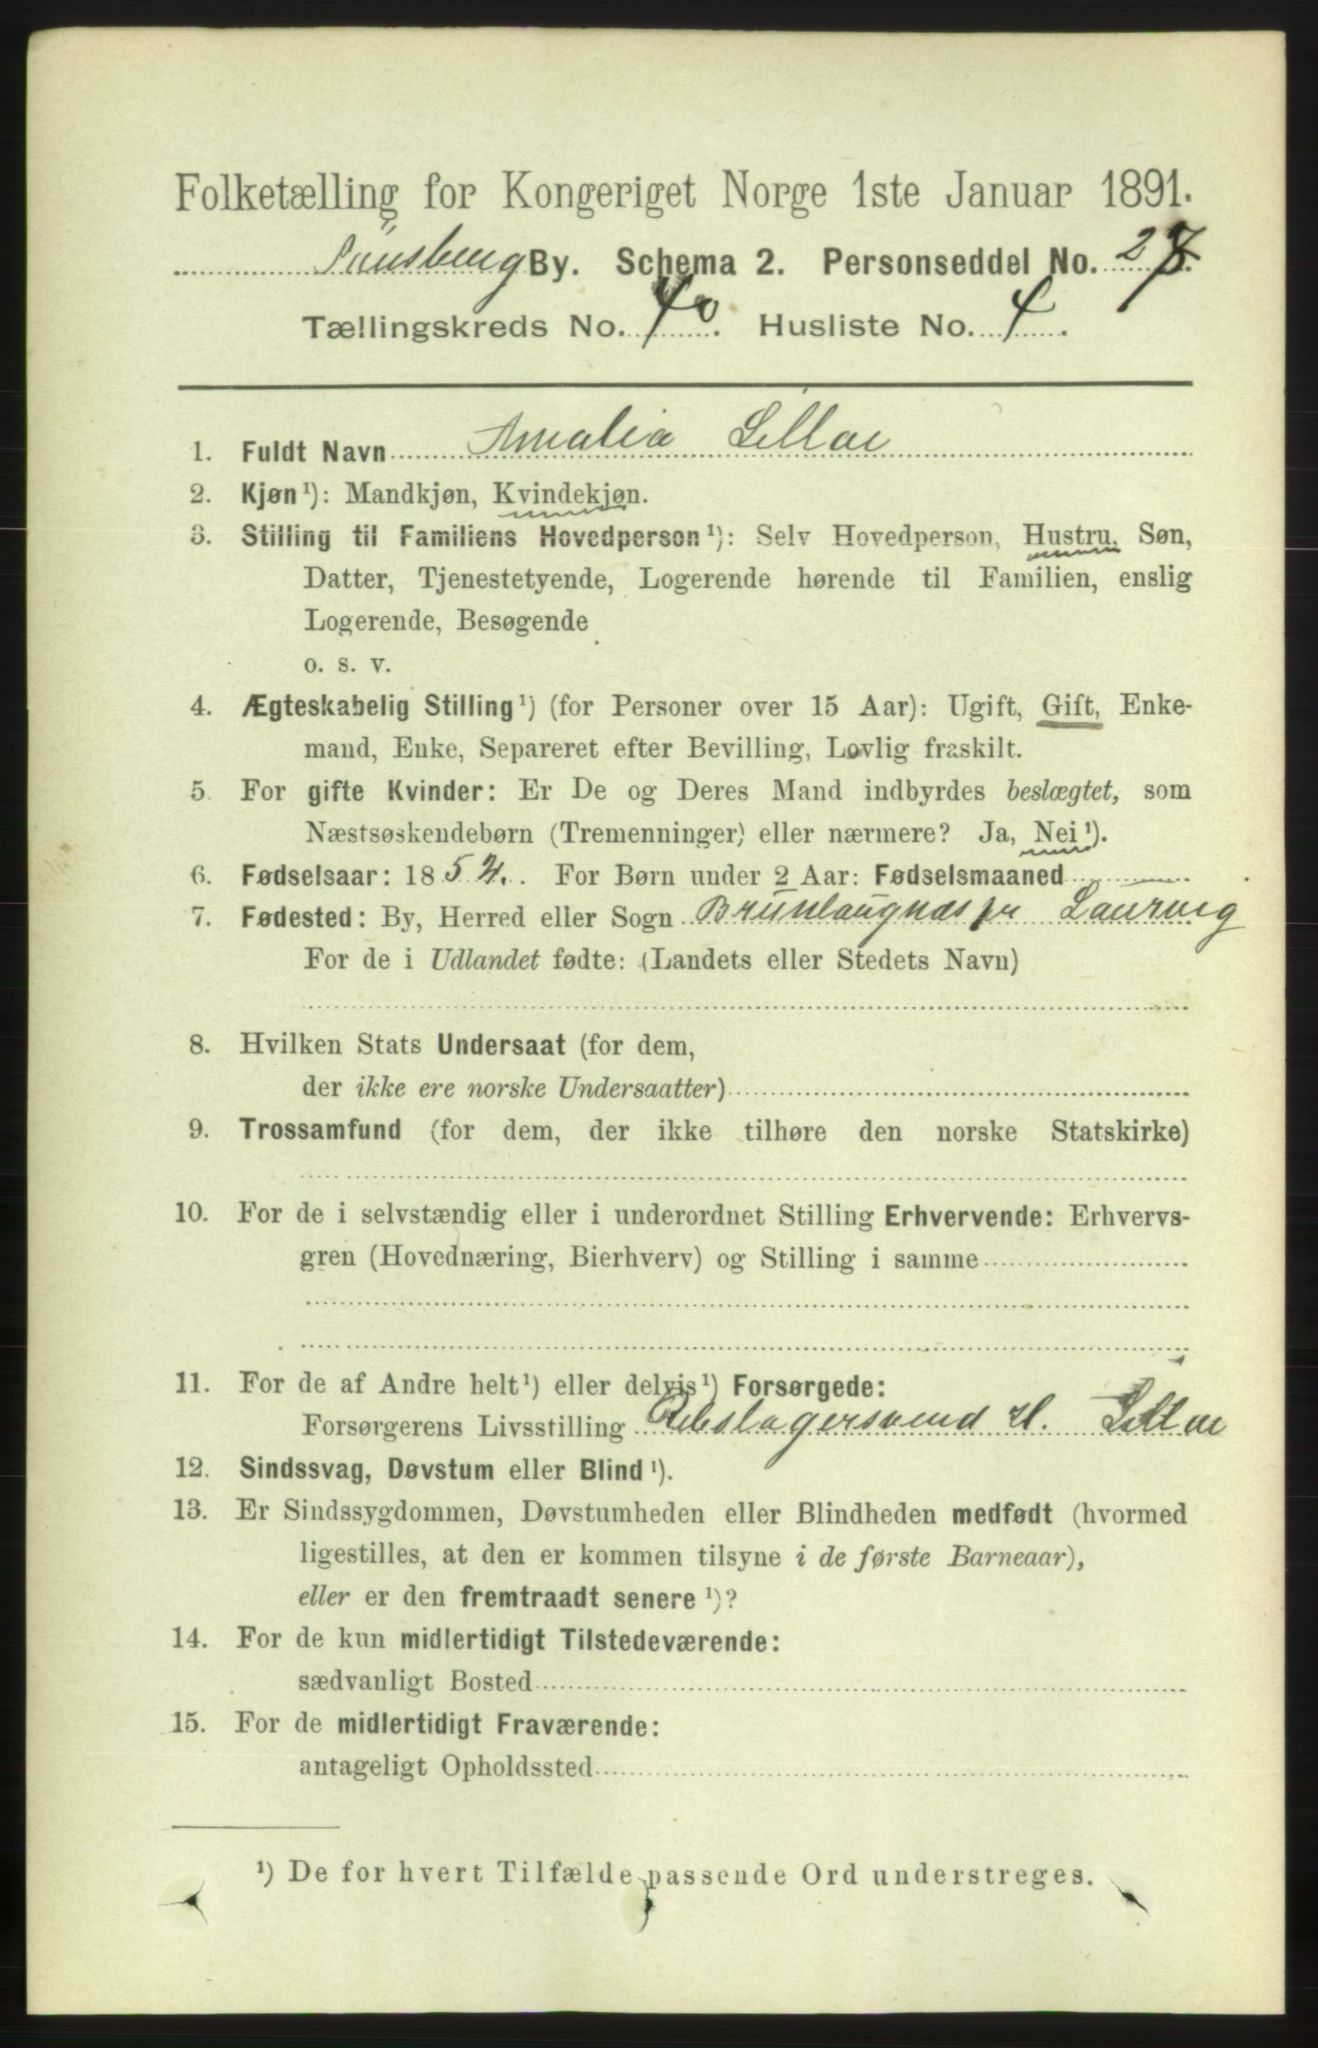 Folketælling for Kongeriget Norge 1ste Januar 1891.
Tünsberg By. Schema 2. Personseddel No. 27.
Tællingskreds No. 40. Husliste No. 4.
1. Fuldt Navn Amalia Lillae
2. Kjøn¹): Mandkjøn, Kvindekjøn.
3. Stilling til Familiens Hovedperson¹): Selv Hovedperson, Hustru, Søn,
Datter, Tjenestetyende, Logerende hørende til Familien, enslig
Logerende, Besøgende
o. s. v.
4. Ægteskabelig Stilling¹) (for Personer over 15 Aar): Ugift, Gift, Enke-
mand, Enke, Separeret efter Bevilling, Lovlig fraskilt.
5. For gifte Kvinder: Er De og Deres Mand indbyrdes beslægtet, som
Næstsøskendebørn (Tremenninger) eller nærmere? Ja, Nei¹).
6. Fødselsaar: 1852. For Børn under 2 Aar: Fødselsmaaned
7. Fødested: By, Herred eller Sogn Brunlaugnæs pr Laurvig
For de i Udlandet fødte: (Landets eller Stedets Navn)
8. Hvilken Stats Undersaat (for dem,
der ikke ere norske Undersaatter)
9. Trossamfund (for dem, der ikke tilhøre den norske Statskirke)
10. For de i selvstændig eller i underordnet Stilling Erhvervende: Erhvervs-
gren (Hovednæring, Bierhverv) og Stilling i samme
11. For de af Andre helt¹) eller delvis¹) Forsørgede:
Forsørgerens Livsstilling Rebslagersvend H. Lillae
12. Sindssvag, Døvstum eller Blind¹).
13. Er Sindssygdommen, Døvstumheden eller Blindheden medfødt (hvormed
ligestilles, at den er kommen tilsyne i de første Barneaar),
eller er den fremtraadt senere¹)?
14. For de kun midlertidigt Tilstedeværende:
sædvanligt Bosted
15. For de midlertidigt Fraværende:
antageligt Opholdssted
¹) De for hvert Tilfælde passende Ord understreges.